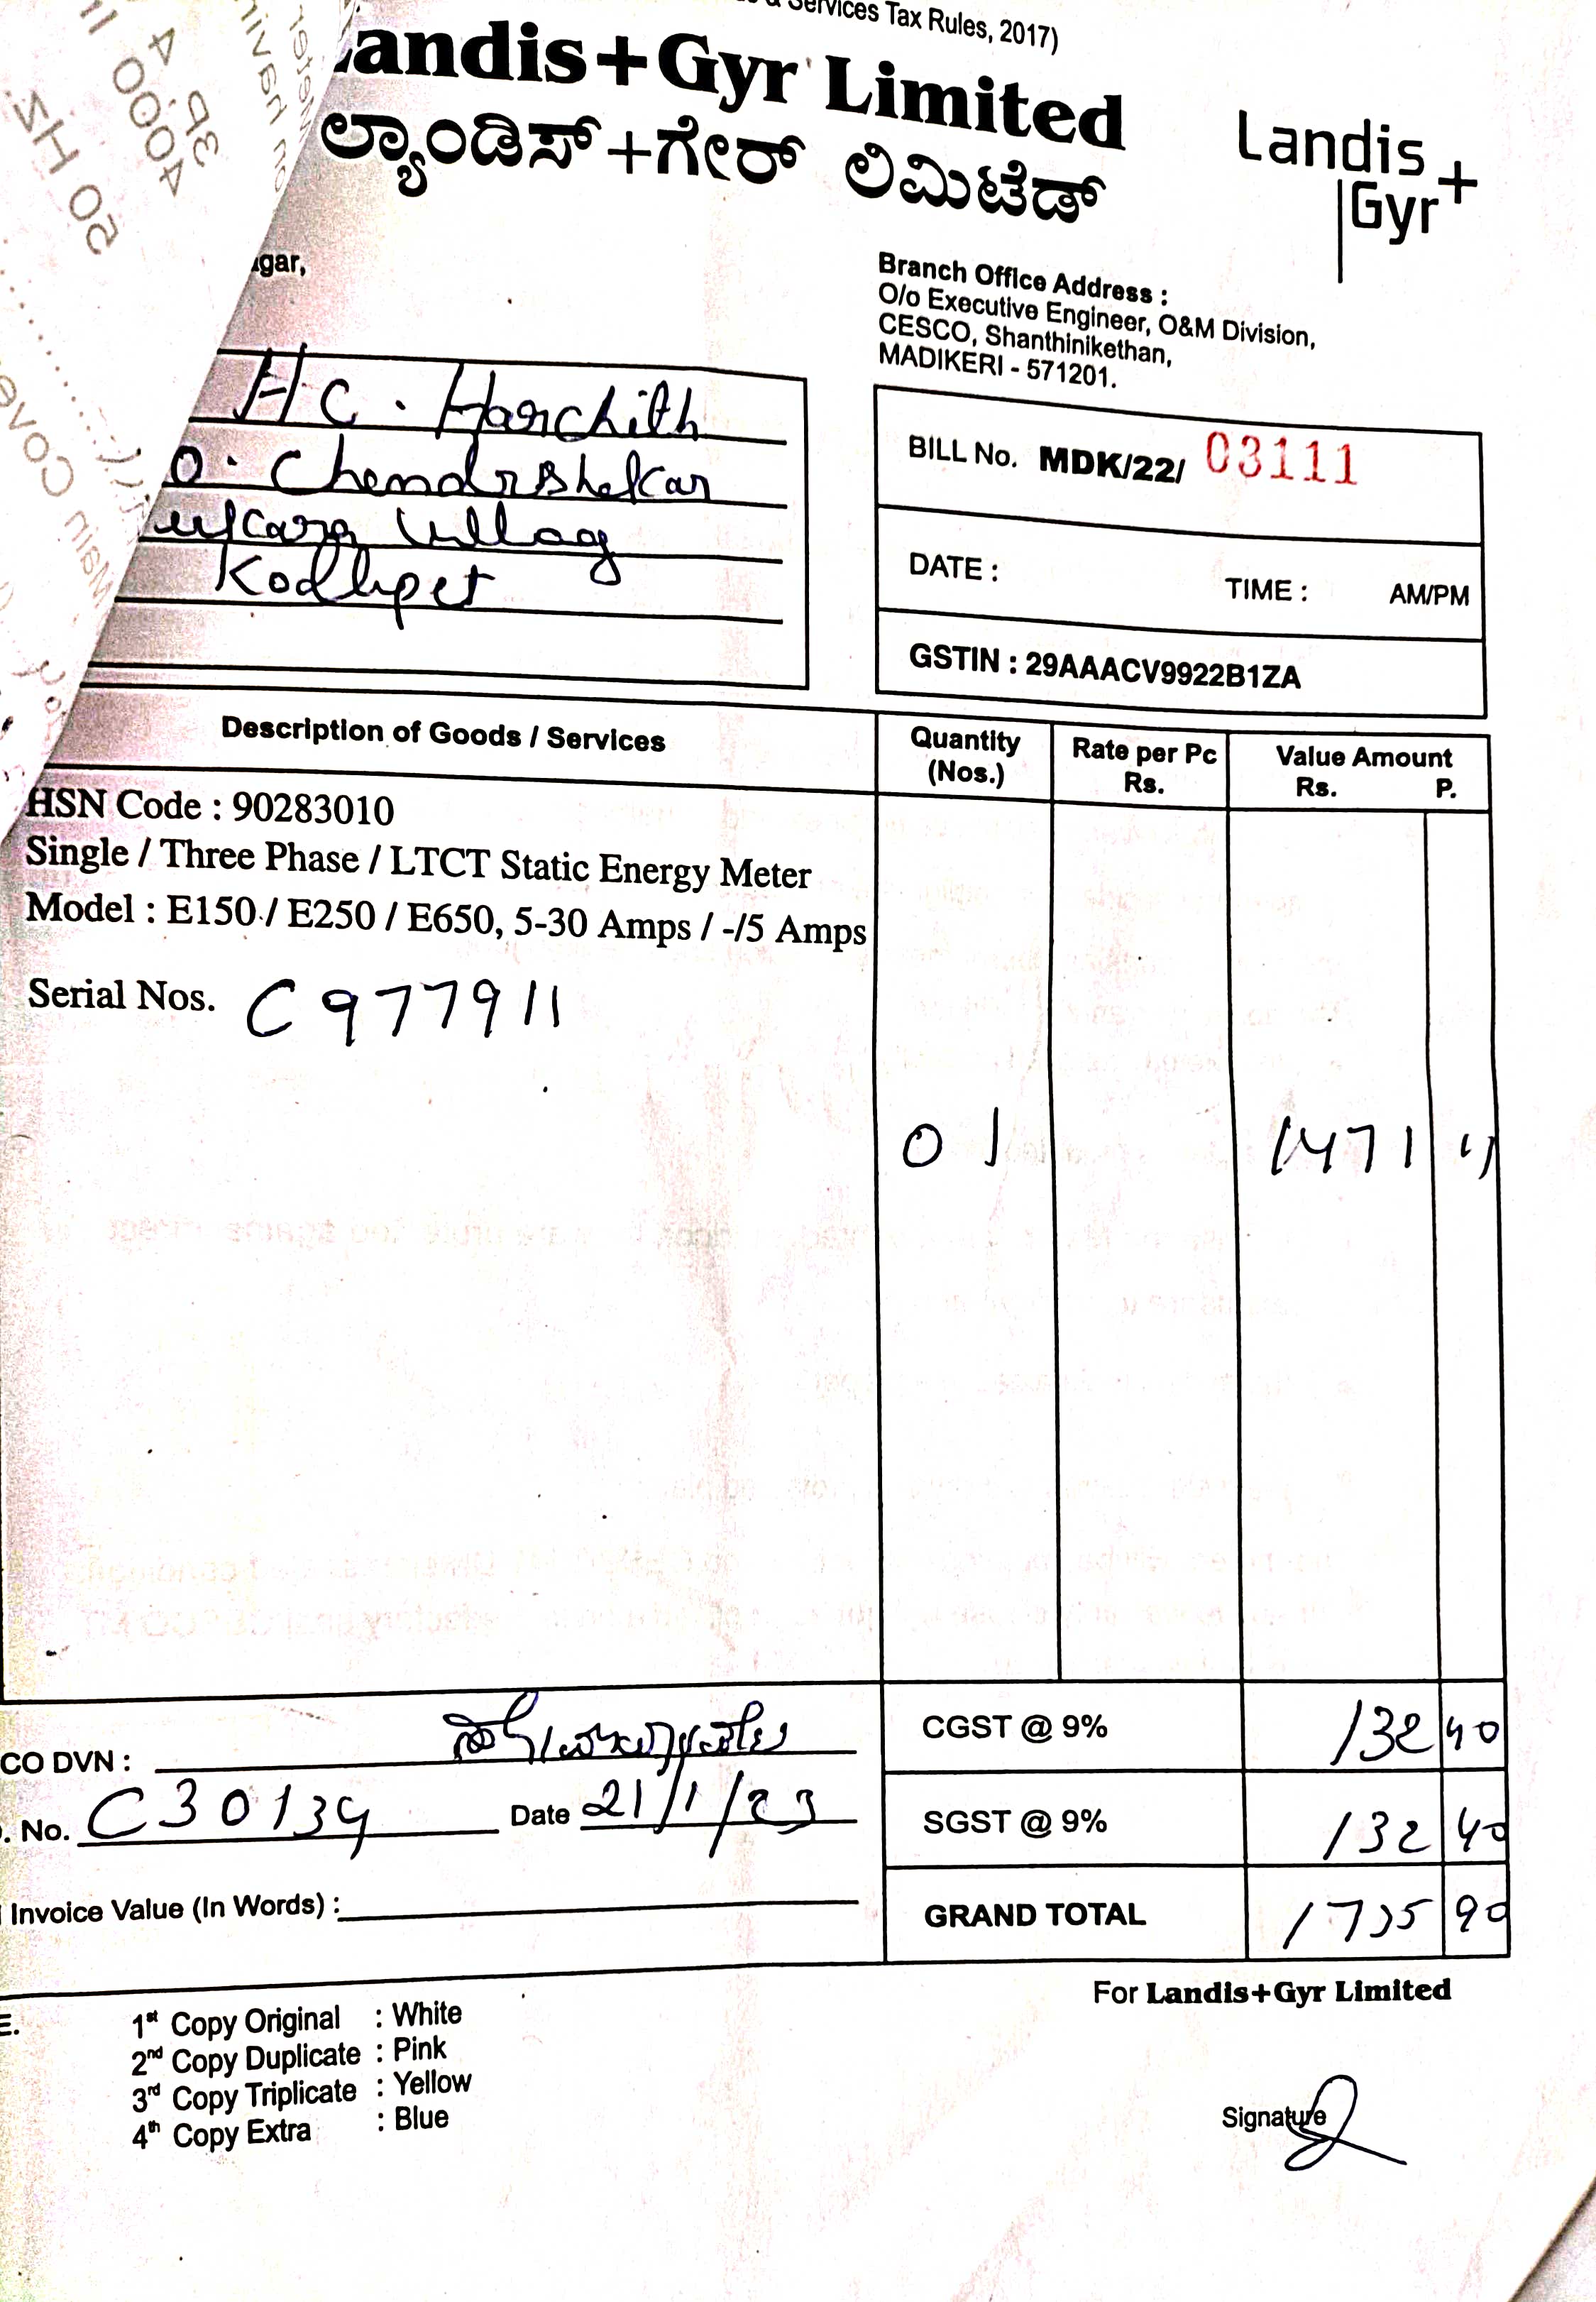 & Services Tax Rules, 2017)
Landis+Gyr Limited
ಲ್ಯಾಂಡಿಸ್+ಗೇರ್ ಲಿಮಿಟೆಡ್
Landis+
Gyr+
50 Hz
gar,
Branch Office Address :
O/o Executive Engineer, O&M Division,
CESCO, Shanthinikethan,
MADIKERI - 571201.
HC. Harchith
O. Chendrshekar
Villag
Kodlipet
BILL No. MDK/22/ 03111
DATE : TIME : AM/PM
GSTIN : 29AAACV9922B1ZA
Description of Goods / Services Quantity (Nos.) Rate per Pc Rs. Value Amount Rs. P.
HSN Code : 90283010
Single / Three Phase / LTCT Static Energy Meter
Model : E150 / E250 / E650, 5-30 Amps / -/5 Amps
Serial Nos. C977911
01 1471 11
CO DVN :
CGST @ 9% 132 40
. No. C30139 Date 21/1/23
SGST @ 9% 132 40
Invoice Value (In Words) :
GRAND TOTAL 1735 90
For Landis+Gyr Limited
E.
1st Copy Original : White
2nd Copy Duplicate : Pink
3rd Copy Triplicate : Yellow
4th Copy Extra : Blue
Signature